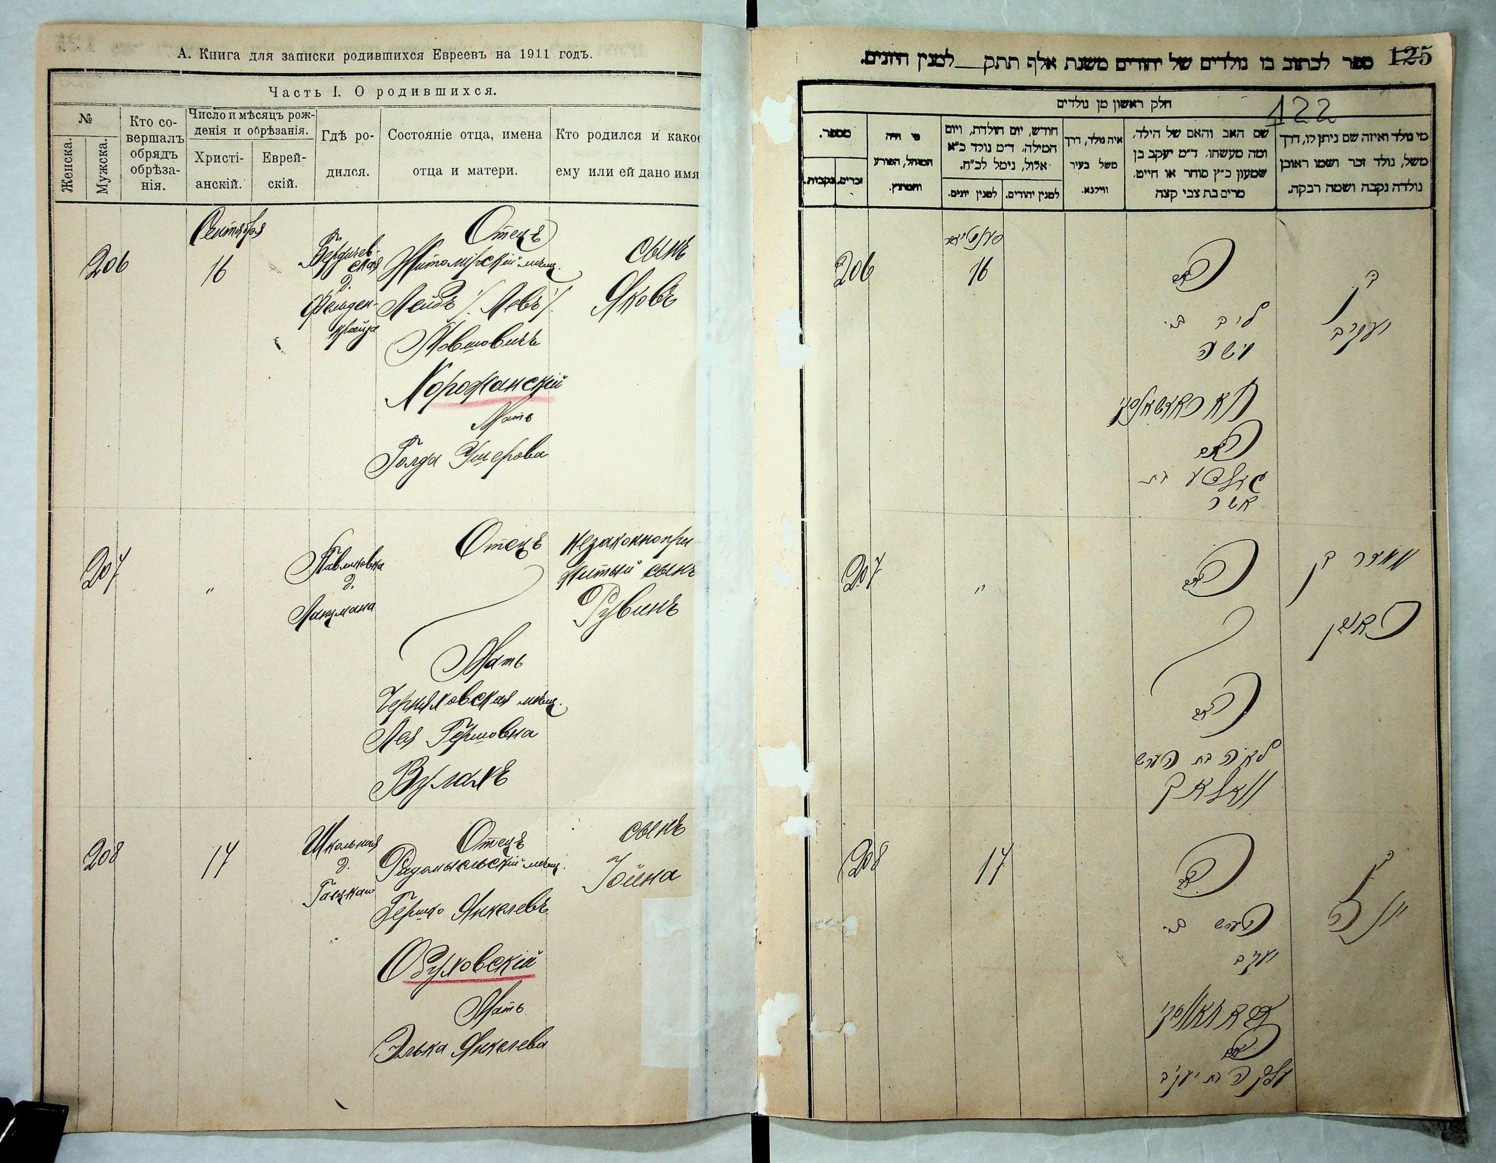 А. Книга для записки родившихся Евреевъ на 1911 годъ.
Часть I. О родившихся.
№
Женска.
Мужска.
Кто со-
вершалъ
обрядъ
обрѣза-
нія.
Число и мѣсяцъ рож-
денія и обрѣзанія.
Христі-
анскій.
Еврей-
скій.
Гдѣ ро-
дился.
Состояніе отца, имена
отца и матери.
Кто родился и какое
ему или ей дано имя
Сентября
206
16
Бердичев-
ская
д.
Отецъ
Житомірскій мѣщ.
Лейбъ /Левъ/
Мовшовичъ
Мать
Голда Ушерова
сынъ
Яковъ
207
"
Павликовка
д.
Ланцмана
Отецъ
Мать
Черняховская мѣщ.
Лея Гершовна
Вулахъ
незаконнопри-
житый сынъ
Рувинъ
208
17
Школьная
д.
Отецъ
Радомысльскій мѣщ.
Гершко Янкелевъ
Обуховскій
Мать
Элька Янкелева
сынъ
Іойна
ספר לכתוב בו נולדים של יהודים משנת אלף תתק___למנין היונים.
125
122
חלק ראשון מן נולדים
מספר.
נקבות.
זכרים.
מי היה
המוהל, הפורע
והמוצץ.
חודש, יום הולדת, ויום
המילה. ד״מ נולד כ״א
אלול, נימל לכ״ח.
למנין יונים.
למנין יהודים.
איה נולד, דרך
משל בעיר
ווילנא.
שם האב והאם של הילד,
ומה מעשהו. ד״מ יעקב בן
שמעון כ״ץ סוחר או חייט.
מרים בת צבי קצה
מי נולד ואיזה שם ניתן לו, דרך
משל, נולד זכר ושמו ראובן
נולדה נקבה ושמה רבקה.
206
16
האב
ליב בן
משה
האם
גאלדע בת
אשר
בן
יעקב
207
"
האב
האם
לאה בת הערש
וואלאך
ממזר בן
ראובן
208
17
האב
הערש בן
יעקב
האם
עלקה בת יעקב
בן
יונה